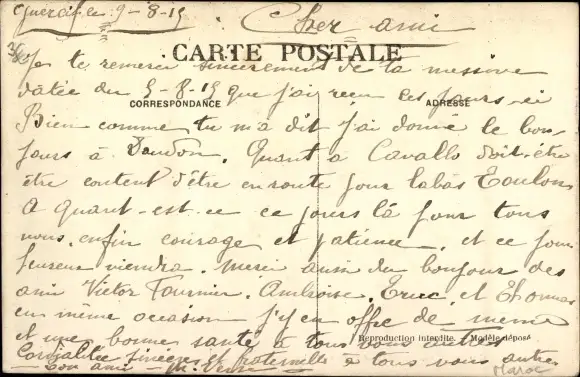 Guercif le 9-8-19 Cher ami
CARTE POSTALE
Je te remerci sincerement de ta missive
datée du 5-8-19 que j'ai reçu ces jours-ci
CORRESPONDANCE ADRESSE
Bien comme tu m'a dit j'ai donné le bon-
jours à Daudon. Quant a Cavallo doit-être
être content d'être en route pour labas Toulon
A quant-est-ce ce jours là pour tous
nous, enfin courage et patience, et ce jour
heureux viendra. Merci aussi du bonjour des
ami Victor Fournier, Ambroise, Eruc, et Thomas
en même occasion j'y en offre de meme
Reproduction interdite. Modèle déposé
et une bonne santé à tous vous autres
Cordialités sincères et fraternelle à tous vous autres
Ton ami
Maroc